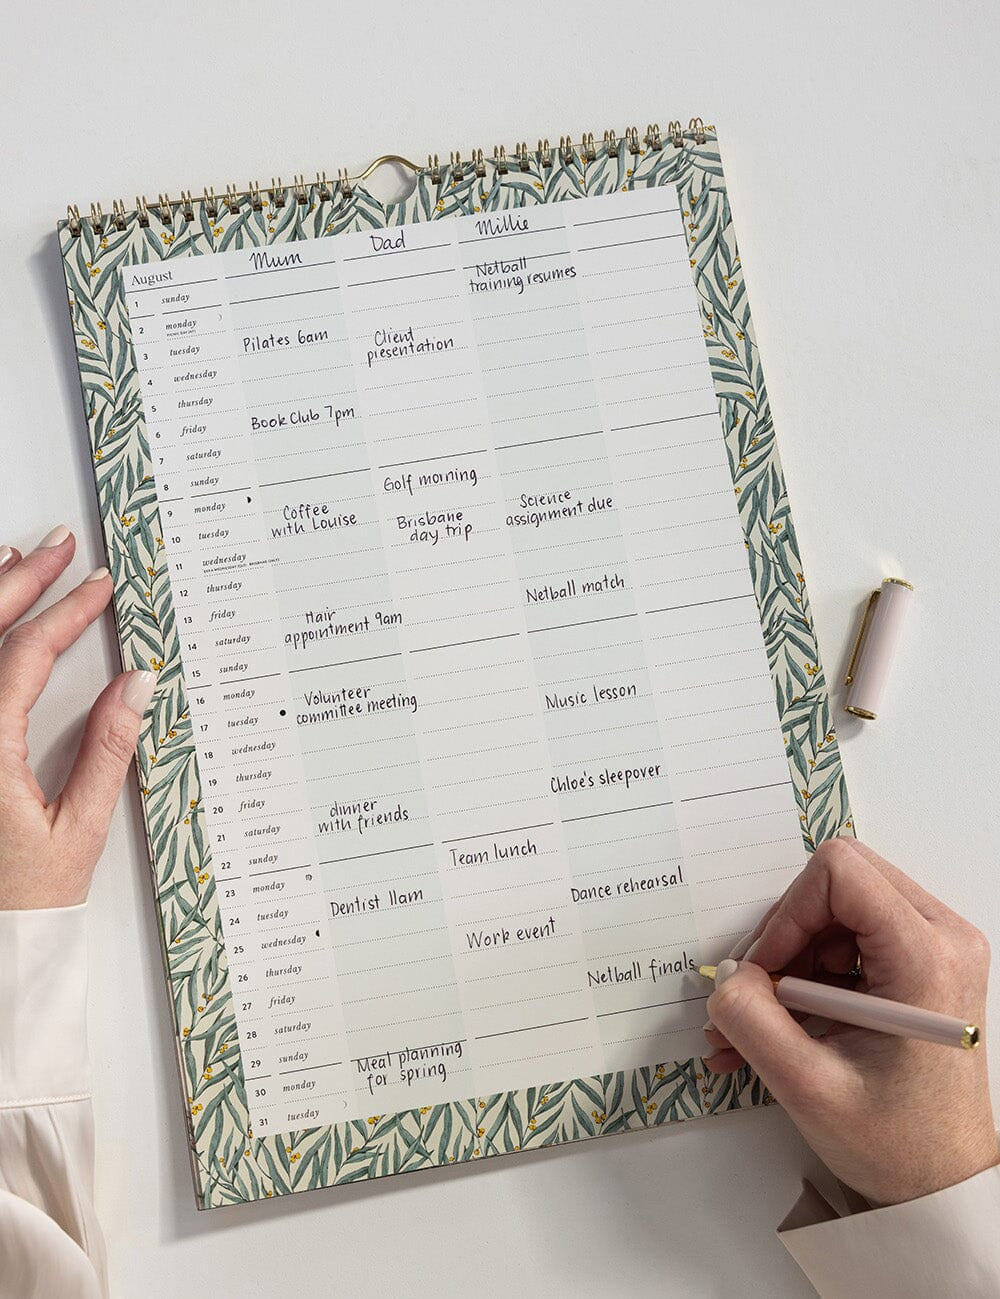 August
Mum
Dad
Millie
1 sunday
2 monday
Netball
training resumes
3 tuesday
Pilates 6am
Client
presentation
4 wednesday
5 thursday
6 friday
Book Club 7pm
7 saturday
8 sunday
Golf morning
9 monday
10 tuesday
Coffee
with Louise
Brisbane
day trip
Science
assignment due
11 wednesday
12 thursday
13 friday
Netball match
14 saturday
Hair
appointment 9am
15 sunday
16 monday
17 tuesday
Volunteer
committee meeting
Music lesson
18 wednesday
19 thursday
20 friday
Chloe's sleepover
21 saturday
dinner
with friends
22 sunday
23 monday
Team lunch
24 tuesday
Dentist 11am
Dance rehearsal
25 wednesday
26 thursday
Work event
27 friday
Netball finals
28 saturday
29 sunday
30 monday
Meal planning
for spring
31 tuesday